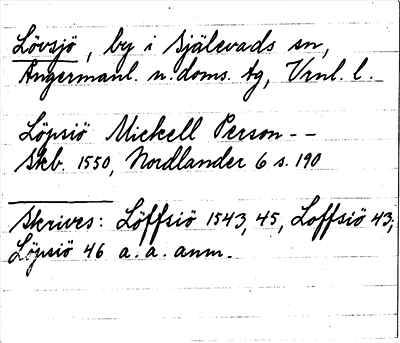 Lövsjö, by i Själevads sn,
Ångermanl. n. doms. tg, Vrnl. l.
Löpsiö Mickell Person - -
Skb. 1550, Nordlander 6 s. 190
Skrives: Löffsiö 1543, 45, Loffsiö 43,
Löpsiö 46 a. a. anm.